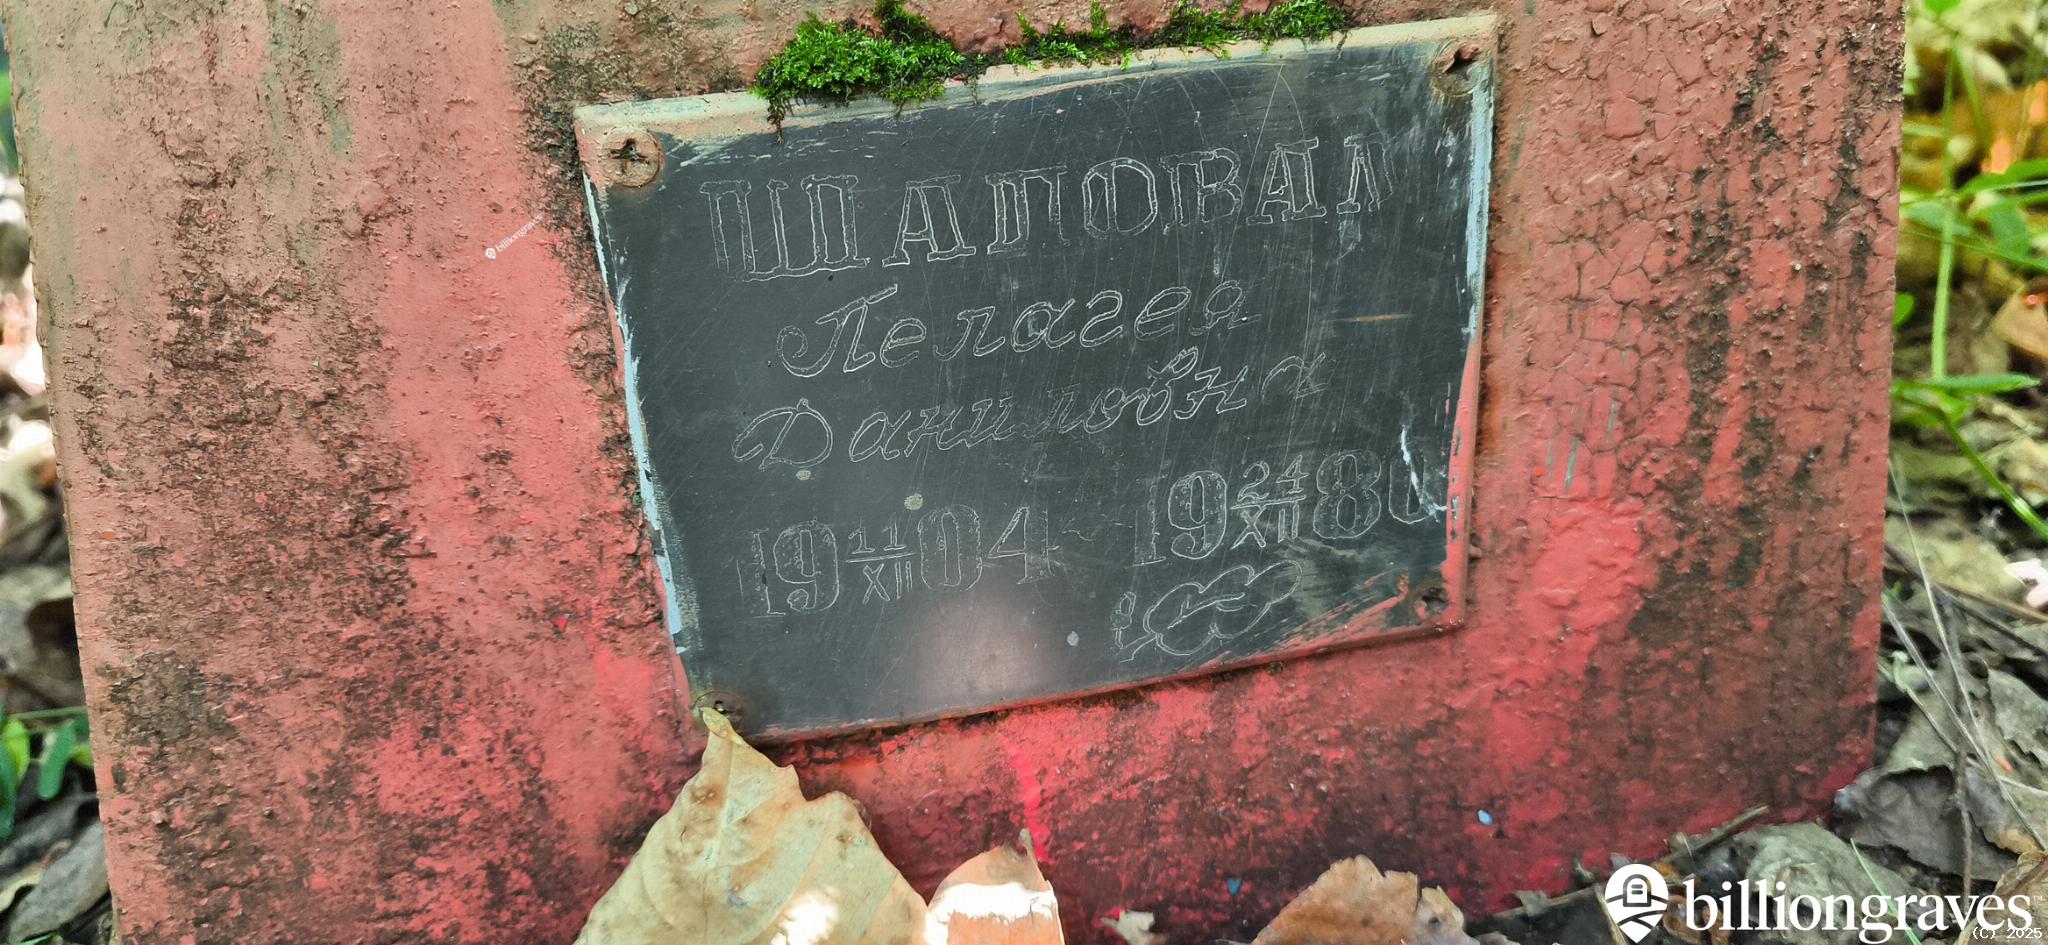 ШАПОВАЛ
Пелагея
Даниловна
19 11/XII 04 - 19 24/XII 80
billiongraves
billiongraves™
(C) 2025